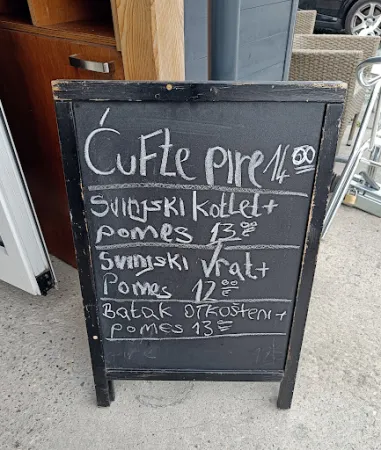 Ćufte pire 14 00
Svinjski kotlet +
pomes 13 00
Svinjski vrat +
Pomes 12 00
Batak otkošteni +
pomes 13 00